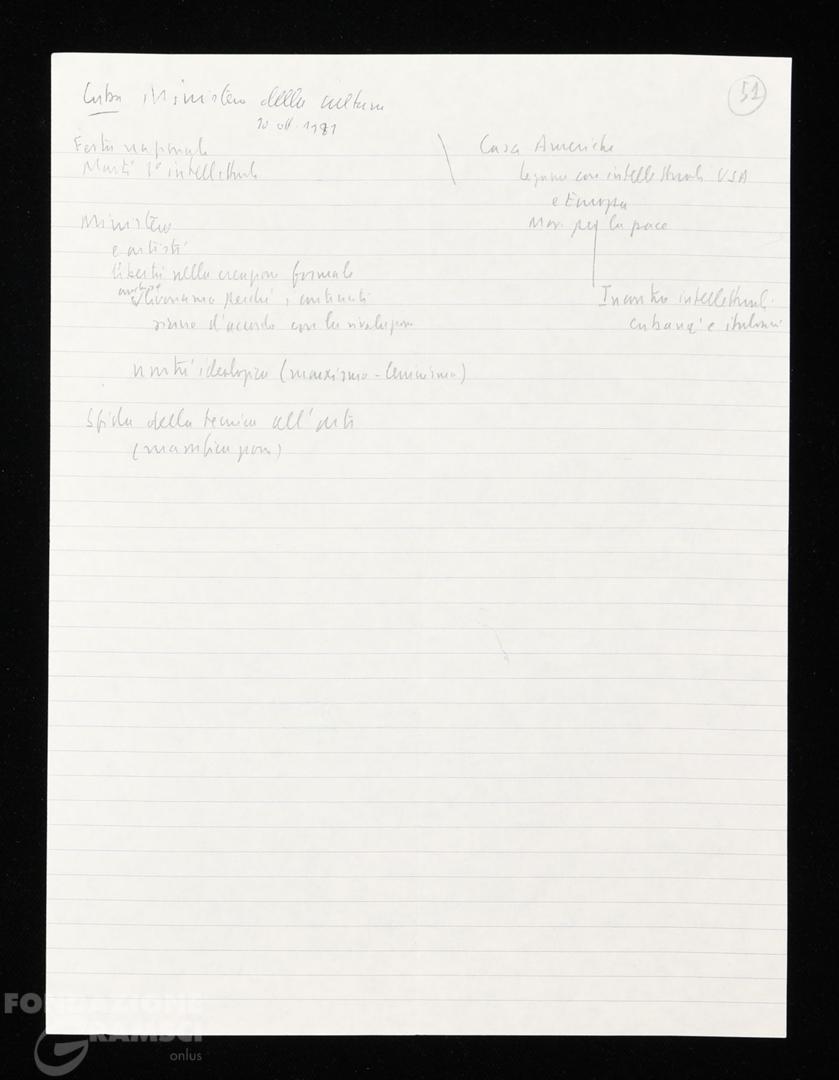 51
Cuba Ministero della cultura
10 ott. 1981
Festa nazionale
Martí 1° intellettuale
Ministero
e artisti
libertà nella creazione formale
anche se lavoriamo perché i contenuti
siano d'accordo con la rivoluzione
unità ideologica (marxismo-leninismo)
Sfida della tecnica all'arte
(massificazione)
Casa Americhe
legame con intellettuali USA
e Europa
Mov. per la pace
Incontro intellettuali
cubani e italiani
FONDAZIONE
GRAMSCI
onlus